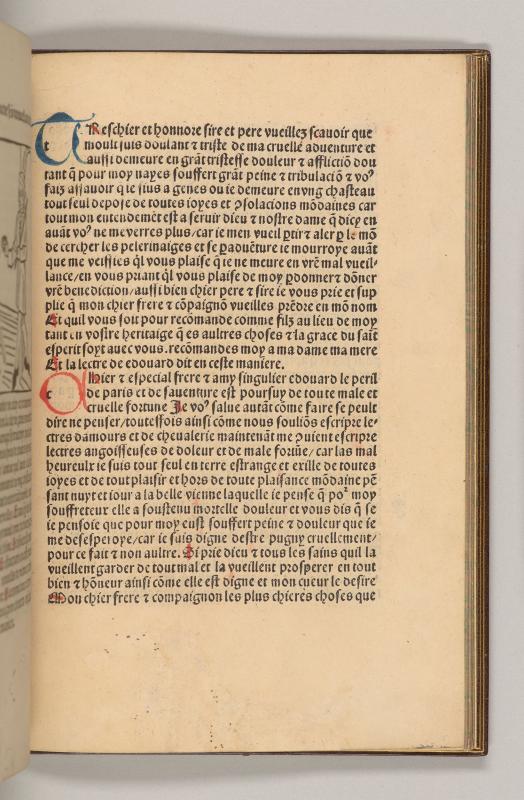 TReschier et honnore sire et pere vueillez scauoir que
t moult suis doulant ⁊ triste de ma cruelle aduenture et
aussi demeure en grãt tristesse douleur ⁊ afflictiõ dou
tant q̃ pour moy nayes souffert grãt peine ⁊ tribulaciõ ⁊ voꝰ
faiz assauoir q̃ ie suis a genes ou ie demeure en vng chasteau
tout seul depose de toutes ioyes et ꝯsolacions mõdaines car
tout mon entendemẽt est a seruir dieu ⁊ nostre dame q̃ dicy en
auãt voꝰ ne me verres plus/car ie men vueil ꝑtir ⁊ aler ꝑ le mõ
de cercher les pelerinaiges et se ꝑaduẽture ie mourroye auãt
que me veissies q̃l vous plaise q̃ ie ne meure en vrẽ mal vueil/
lance/en vous priant q̃l vous plaise de moy ꝑdonner ⁊ dõner
vrẽ benediction/aussi bien chier pere ⁊ sire ie vous prie et sup
plie q̃ mon chier frere ⁊ cõpaignõ vueilles prẽdre en mõ nom
Et quil vous soit pour recõmande comme filz au lieu de moy
tant en vostre heritaige q̃ es aultres choses ⁊ la grace du saĩt
esperit soyt auec vous.recõmandes moy a ma dame ma mere
Et la lectre de edouard dit en ceste maniere.
CHier ⁊ especial frere ⁊ amy singulier edouard le peril
c de paris et de sauenture est poursuy de toute male et
cruelle fortune Je voꝰ salue autãt cõme faire se peult
dire ne penser/toutesfois ainsi cõme nous souliõs escripre le/
ctres damours et de cheualerie maintenãt me ꝯuient escripre
lectres angoisseuses de doleur et de male fortũe/car las mal
heureulx ie suis tout seul en terre estrange et exille de toutes
ioyes et de tout plaisir et hors de toute plaisance mõdaine pẽ
sant nuyt et iour a la belle vienne laquelle ie pense q̃ poʳ moy
souffreteux elle a soustenu mortelle douleur et vous dis q̃ se
ie pensoie que pour moy eust souffert peine ⁊ douleur que ie
me desesperoye/car ie suis digne destre pugny cruellement/
pour ce fait ⁊ non aultre. Si prie dieu ⁊ tous les sains quil la
vueillent garder de tout mal et la vueillent prosperer en tout
bien ⁊ hõneur ainsi cõme elle est digne et mon cueur le desire
Mon chier frere ⁊ compaignon les plus chieres choses que